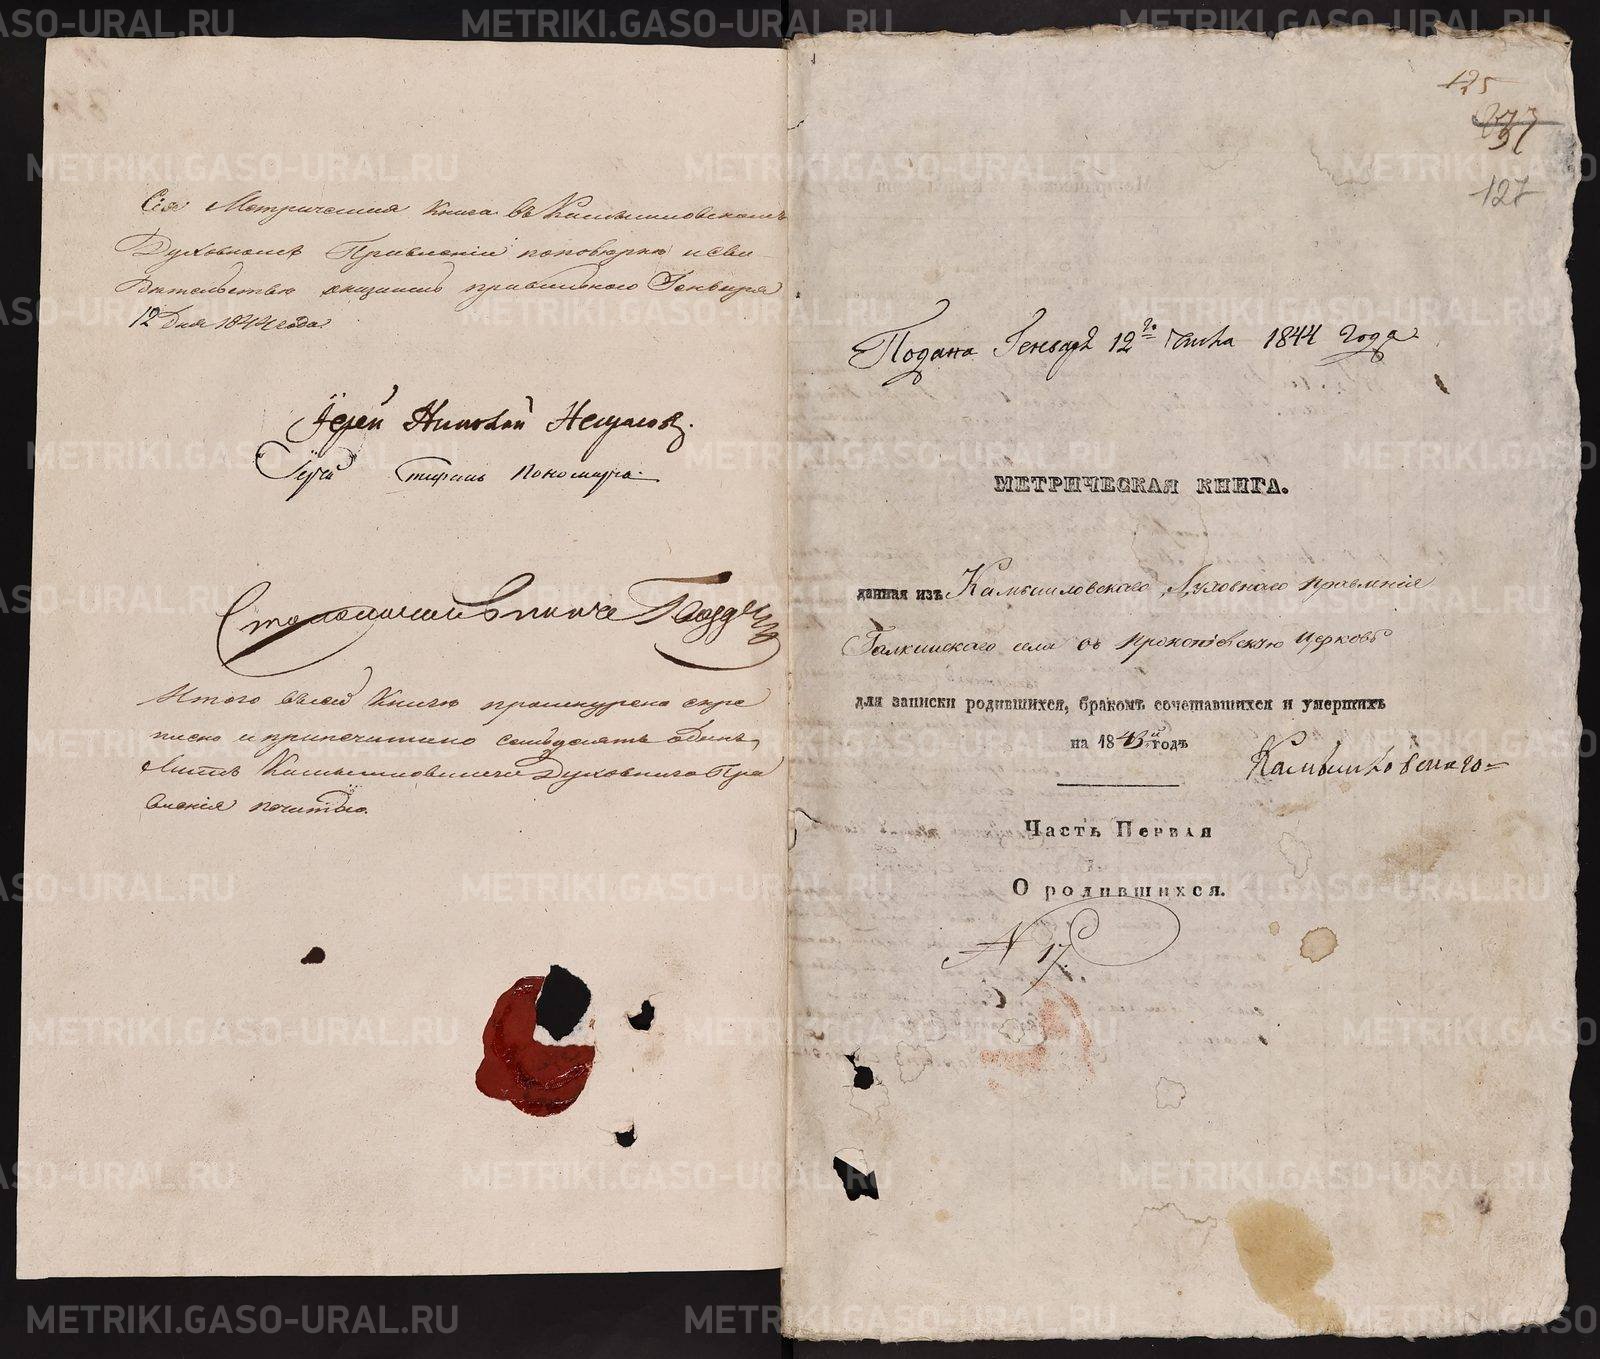 Сія Метрическая книга въ Камышловскомъ
Духовномъ Правленіи по повѣркѣ и сви
дѣтельству оказалась правильною Генваря
12 дня 1844 года.
Іерей Николай Некрасовъ.
Итого въ сей Книгѣ прошнурено скре
плено и припечатано семьдесятъ одинъ
листъ Камышловскаго Духовнаго Пра
вленія печатью.
125
97
127
Подана Генваря 12го числа 1844 года
МЕТРИЧЕСКАЯ КНИГА.
данная изъ Камышловскаго Духовнаго Правленія
Галкинскаго села въ Прокопіевскую Церковь
для записки родившихся, бракомъ сочетавшихся и умершихъ
на 1843й годъ
Камышловскаго
Часть Первая
О родившихся.
N 17.
METRIKI.GASO-URAL.RU